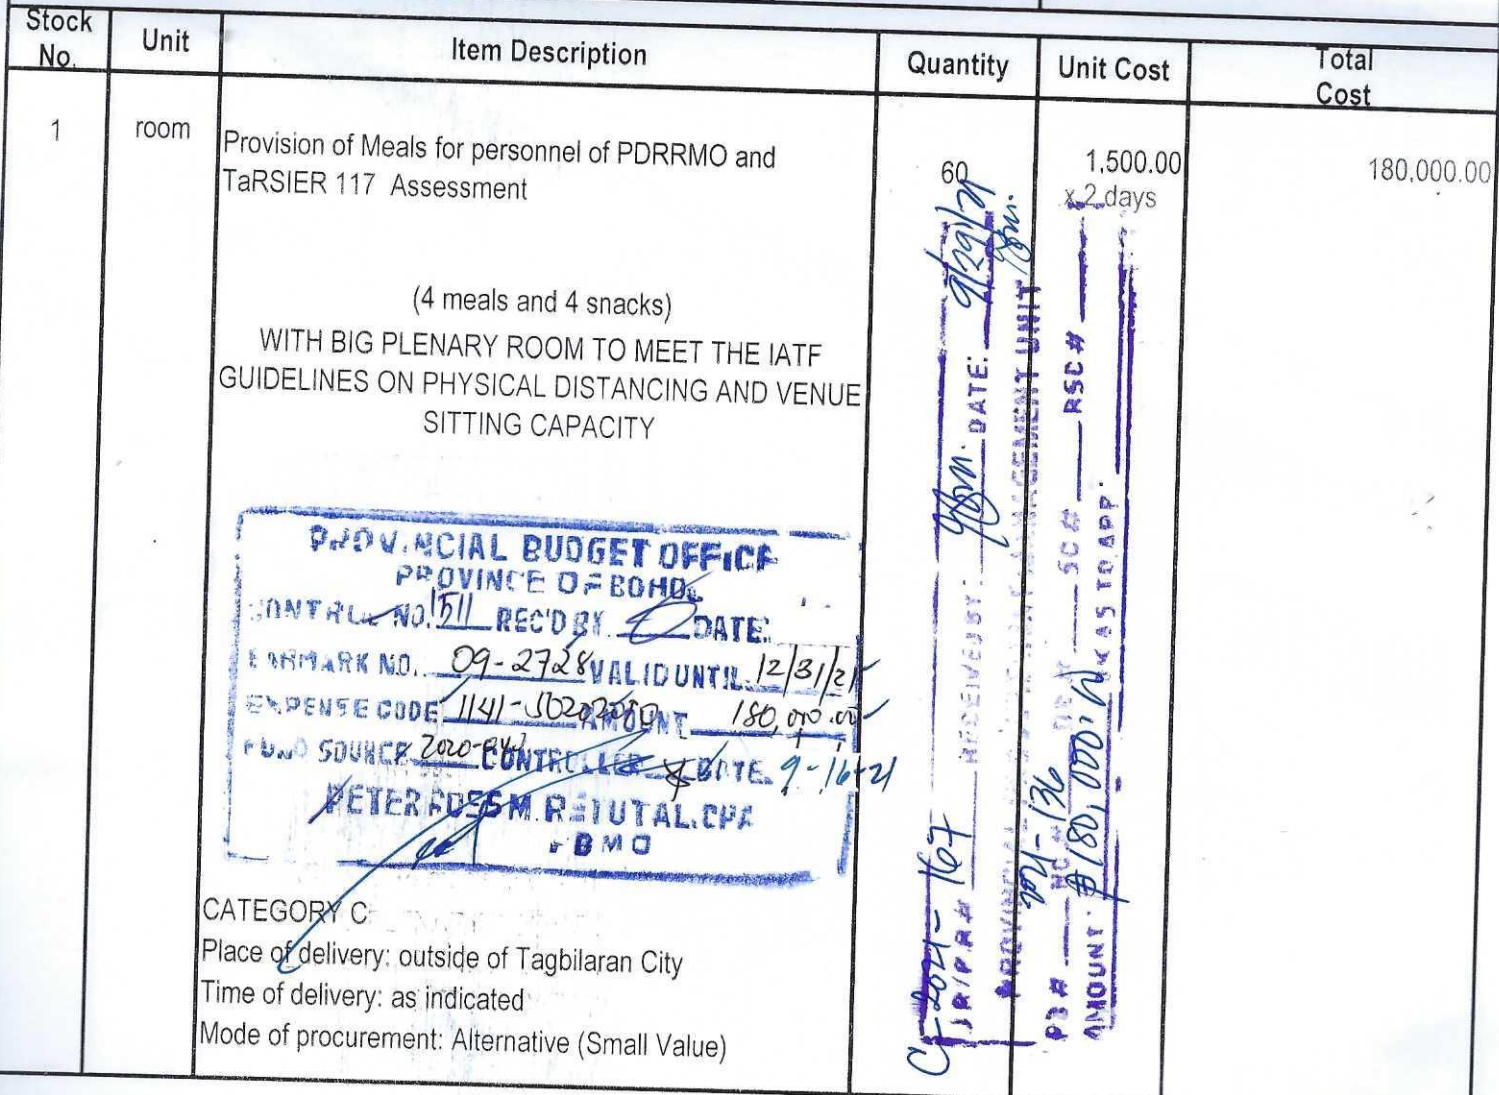 Stock No.
Unit
Item Description
Quantity
Unit Cost
Total Cost
1
room
Provision of Meals for personnel of PDRRMO and
TaRSIER 117 Assessment
60
1,500.00
x 2 days
180,000.00
(4 meals and 4 snacks)
WITH BIG PLENARY ROOM TO MEET THE IATF
GUIDELINES ON PHYSICAL DISTANCING AND VENUE
SITTING CAPACITY
PROVINCIAL BUDGET OFFICE
PROVINCE OF BOHOL
CONTROL NO. 1511 REC'D BY DATE:
EARMARK NO. 09-2728 VALID UNTIL 12/31/21
EXPENSE CODE 1141- AMOUNT 180,000.00
FUND SOURCE 2020- CONTROLLER DATE 9-16-21
PETER ROSS M. RETUTAL, CPA
PBMO
CATEGORY C
Place of delivery: outside of Tagbilaran City
Time of delivery: as indicated
Mode of procurement: Alternative (Small Value)
C-2021-167
JR/P.R# RECEIVED BY: DATE: 9/29/21
MANAGEMENT UNIT
PB# SC# RSC#
AMOUNT: ₱180,000.00 OK AS TO APP